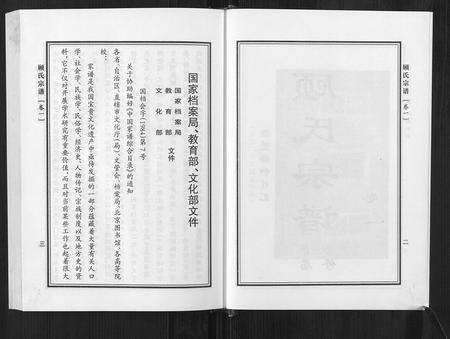 顾氏宗谱（卷一）
二
国家档案局、教育部、文化部文件
国家档案局
教育部
文化部
文件
国档会字(1984)第7号
关于协助编好《中国家谱综合目录》的通知
各省、自治区、直辖市文化厅(局)、文管会、档案局、北京图书馆、各高等院
校：
家谱是我国宝贵文化遗产中亟待发掘的一部分，蕴藏着大量有关人口
学、社会学、民族学、民俗学、经济史、人物传记、宗族制度以及地方史的资
料，它不仅对开展学术研究有重要价值，而且对当前某些工作也起着很大
顾氏宗谱（卷一）
三